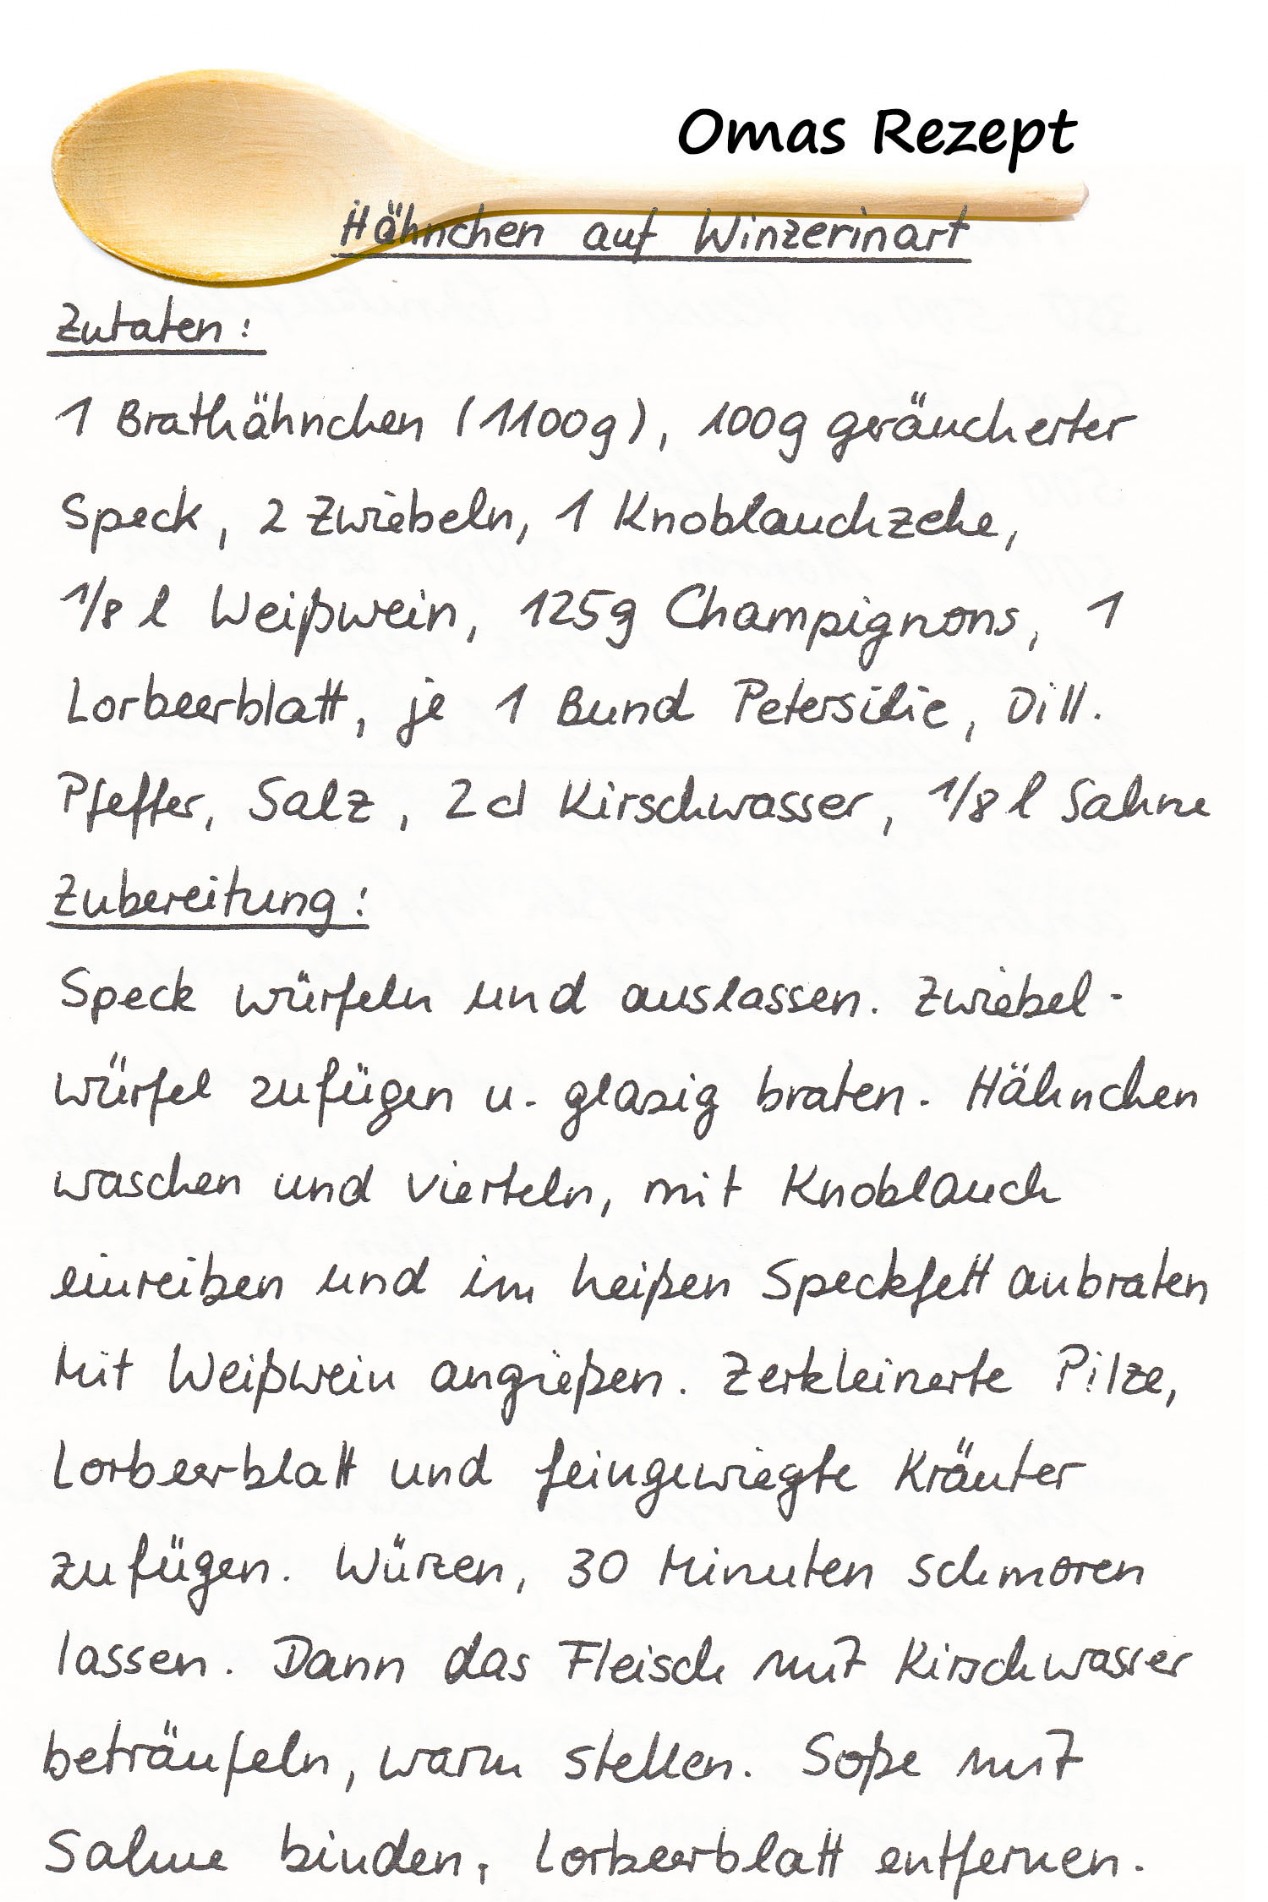 Omas Rezept
Hähnchen auf Winzerinart
Zutaten:
1 Brathähnchen (1100g), 100g geräucherter
Speck, 2 Zwiebeln, 1 Knoblauchzehe,
1/8 l Weißwein, 125g Champignons, 1
Lorbeerblatt, je 1 Bund Petersilie, Dill.
Pfeffer, Salz, 2 cl Kirschwasser, 1/8 l Sahne
Zubereitung:
Speck würfeln und auslassen. Zwiebel-
würfel zufügen u. glasig braten. Hähnchen
waschen und vierteln, mit Knoblauch
einreiben und im heißen Speckfett anbraten
Mit Weißwein angießen. Zerkleinerte Pilze,
Lorbeerblatt und feingewiegte Kräuter
zufügen. Würzen, 30 Minuten schmoren
lassen. Dann das Fleisch mit Kirschwasser
beträufeln, warm stellen. Soße mit
Sahne binden, Lorbeerblatt entfernen.